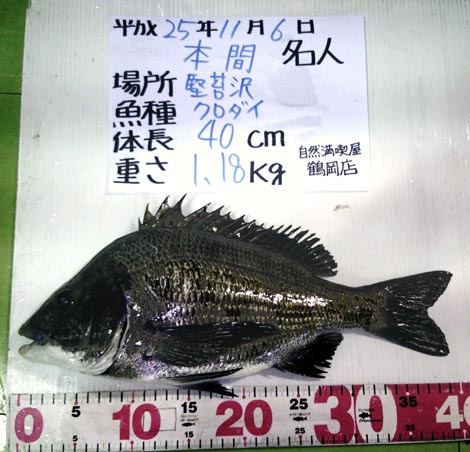 平成25年11月6日
本間 名人
場所 堅苔沢
魚種 クロダイ
体長 40cm
重さ 1,18Kg
自然満喫屋
鶴岡店
0 5 10 15 20 25 30 35 40